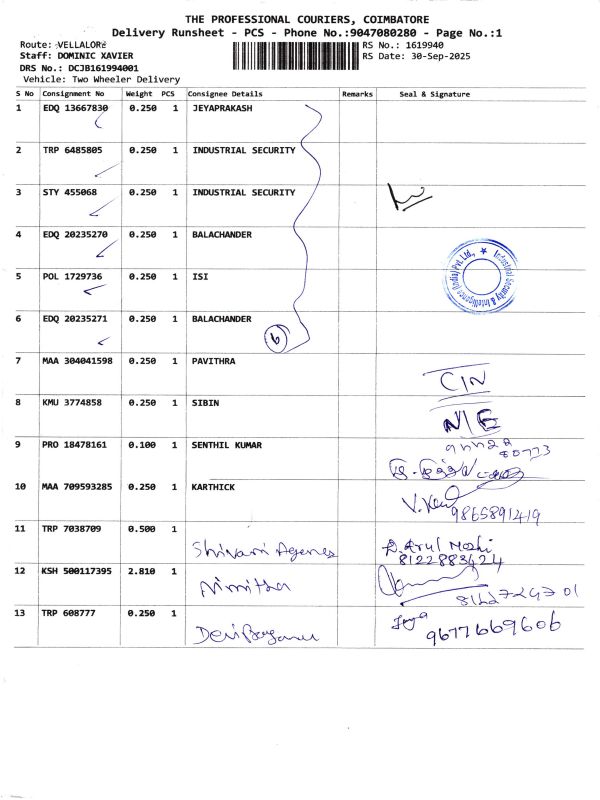 THE PROFESSIONAL COURIERS, COIMBATORE
Delivery Runsheet - PCS - Phone No.:9047080280 - Page No.:1
Route: VELLALORE
RS No.: 1619940
Staff: DOMINIC XAVIER
RS Date: 30-Sep-2025
DRS No.: DCJB161994001
Vehicle: Two Wheeler Delivery
S No Consignment No Weight PCS Consignee Details Remarks Seal & Signature
1 EDQ 13667830 0.250 1 JEYAPRAKASH
2 TRP 6485805 0.250 1 INDUSTRIAL SECURITY
3 STY 455068 0.250 1 INDUSTRIAL SECURITY
4 EDQ 20235270 0.250 1 BALACHANDER
Industrial Security & Intelligence (India) Pvt. Ltd.,
5 POL 1729736 0.250 1 ISI
6 EDQ 20235271 0.250 1 BALACHANDER
6
7 MAA 304041598 0.250 1 PAVITHRA
C/N
8 KMU 3774858 0.250 1 SIBIN
N/E
9 PRO 18478161 0.100 1 SENTHIL KUMAR
80773
10 MAA 709593285 0.250 1 KARTHICK
9865891419
11 TRP 7038709 0.500 1
Shivani Agences
D. Arul Moshi
8122883424
12 KSH 500117395 2.810 1
Nimitha
13 TRP 608777 0.250 1
Jaya
9677669606